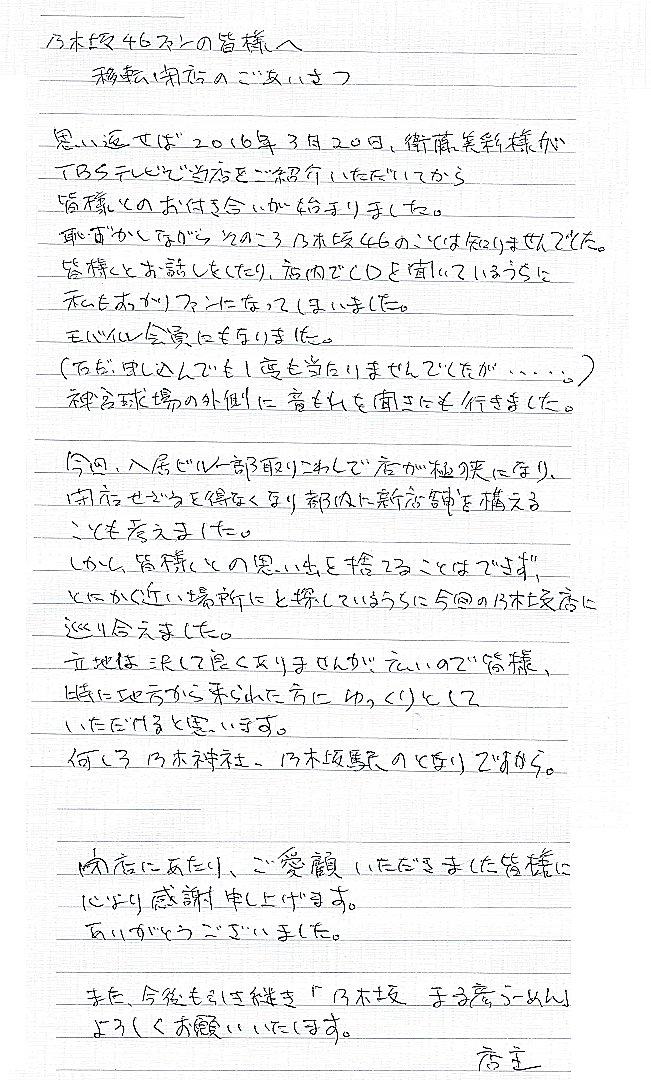 乃木坂46ファンの皆様へ
移転閉店のごあいさつ
思い返せば2016年3月20日、衛藤美彩様が
TBSテレビで当店をご紹介いただいてから
皆様とのお付き合いが始まりました。
恥ずかしながらそのころ乃木坂46のことは知りませんでした。
皆様とお話しをしたり、店内でCDを聞いているうちに
私もすっかりファンになってしまいました。
モバイル会員にもなりました。
(ただ、申し込んでも1度も当たりませんでしたが……。)
神宮球場の外側に音もれを聞きにも行きました。
今回、入居ビル一部取りこわしで店が極狭になり、
閉店せざるを得なくなり都内に新店舗を構える
ことも考えました。
しかし、皆様との思い出を捨てることはできず、
とにかく近い場所にと探しているうちに今回の乃木坂店に
巡り合えました。
立地は決して良くありませんが、広いので皆様、
特に地方から来られた方にゆっくりとして
いただけると思います。
何しろ乃木神社、乃木坂駅のとなりですから。
閉店にあたり、ご愛顧いただきました皆様に
心より感謝申し上げます。
ありがとうございました。
また、今後も引き継き「乃木坂 まる彦らーめん」
よろしくお願いいたします。
店主